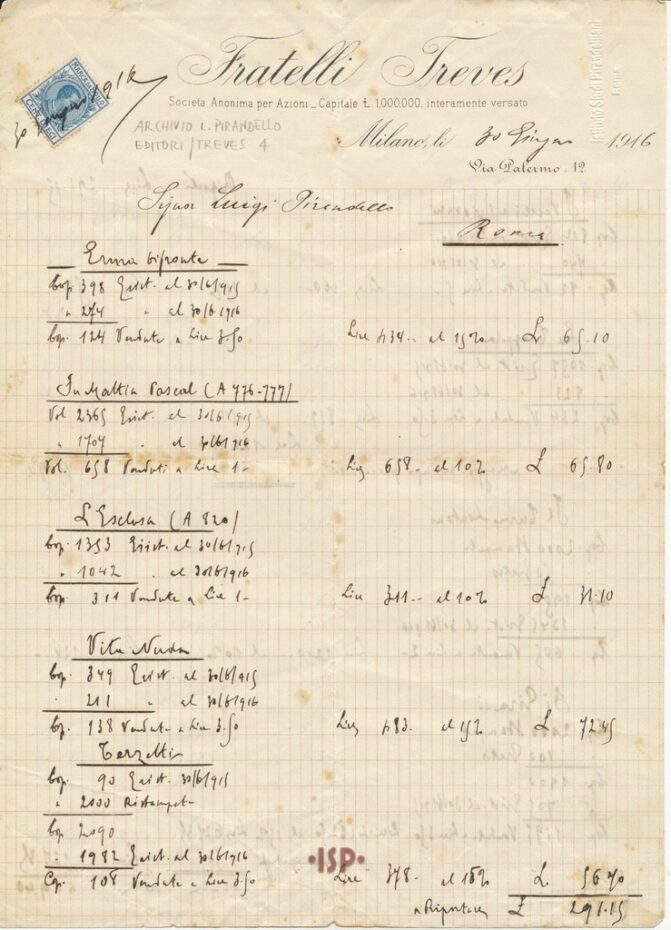 Fratelli Treves
Società Anonima per Azioni _ Capitale £ 1.000.000. interamente versato
ARCHIVIO L. PIRANDELLO
EDITORI / TREVES 4
Milano, li 30 Giugno 1916
Via Palermo, 12
Signor Luigi Pirandello
Roma
Erma bifronte
Cop. 398 Esist. al 30/6/915
" 274 " al 30/6/916
Cop. 124 Vendute a Lire 3.50 Lire 434 - al 15% £ 65.10
Fu Mattia Pascal (A 776-777)
Vol 2365 Esist. al 30/6/915
" 1707 " al 30/6/916
Vol. 658 Venduti a Lire 1- Lire 658 - al 10% £ 65.80
L'Esclusa (A 820)
Cop. 1353 Esist. al 30/6/915
" 1042 " al 30/6/916
Cop. 311 Vendute a Lire 1- Lire 311 - al 10% £ 31.10
Vita Nuda
Cop. 349 Esist. al 30/6/915
" 211 " al 30/6/916
Cop. 138 Vendute a Lire 3.50 Lire 483 al 15% £ 72.45
Terzetti
Cop. 90 Esist. 30/6/915
" 2000 Ristampate
Cop 2090
" 1982 Esist. al 30/6/916
Cop. 108 Vendute a Lire 3.50 Lire 378 - al 15% £ 56.70
a Riportare £ 291.15
·ISP·